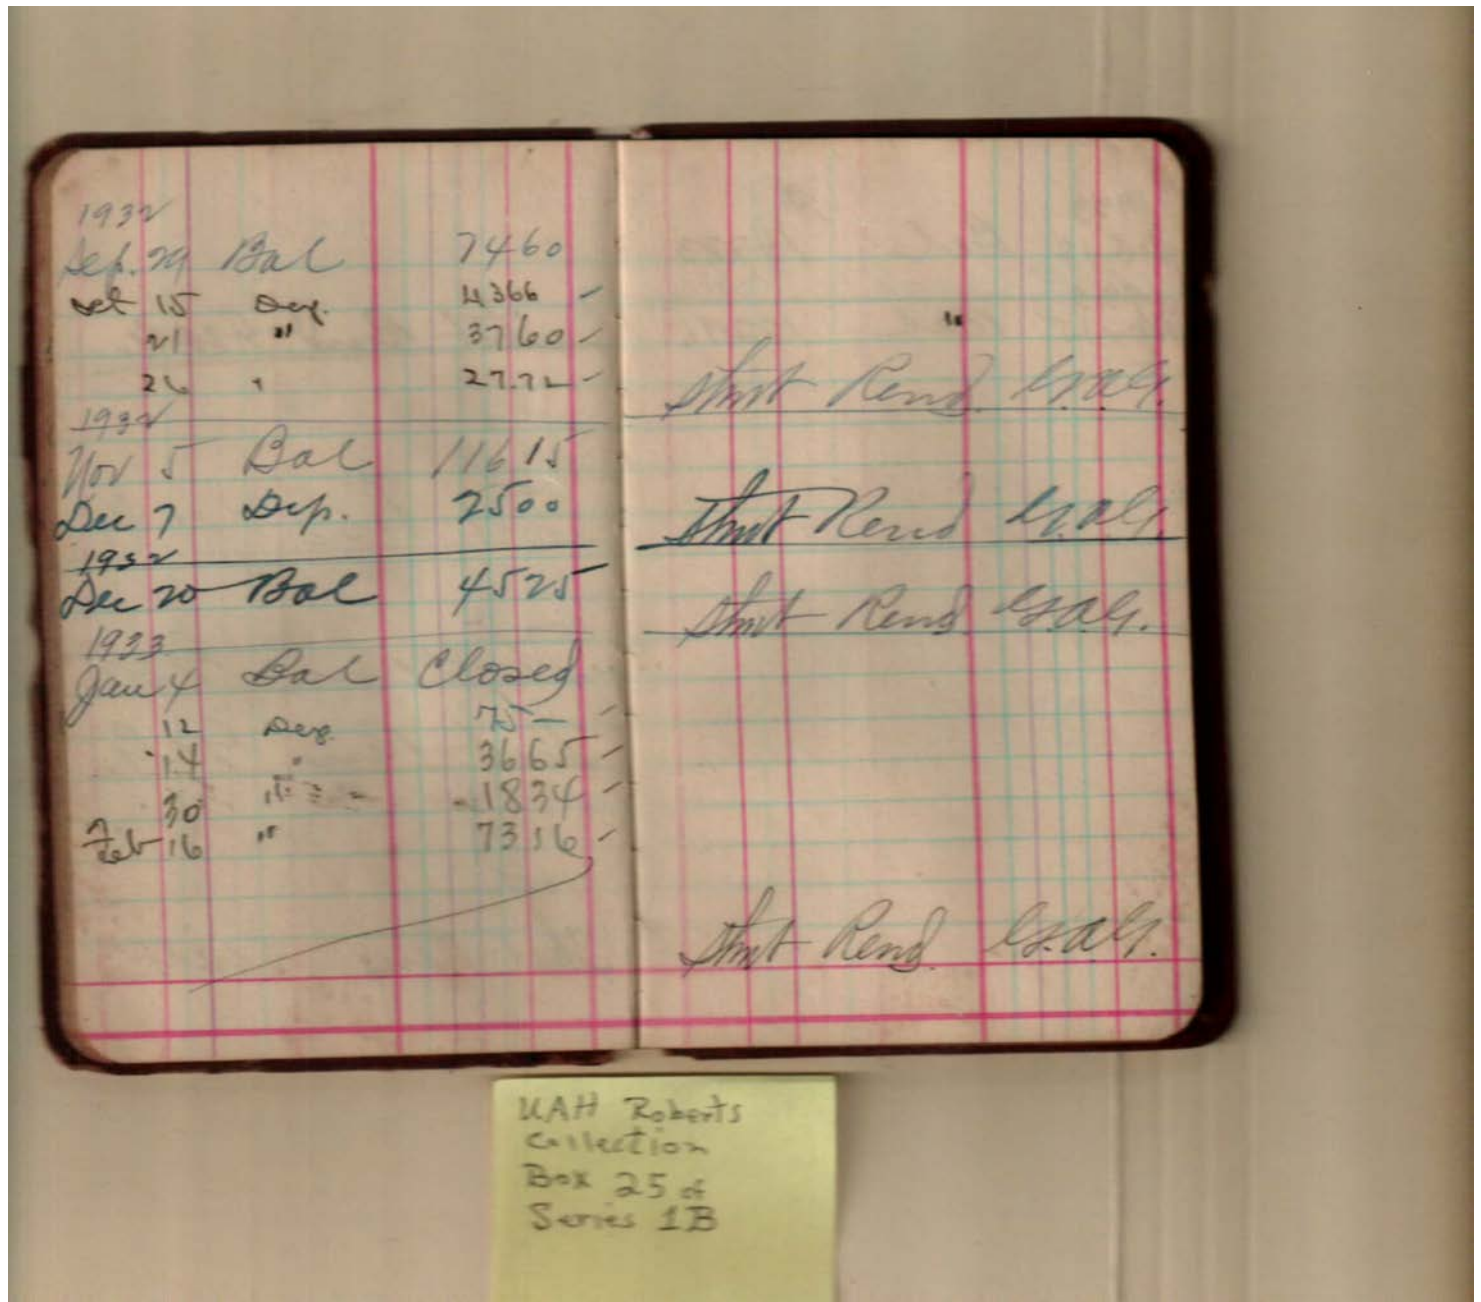 1932
Sep. 29 Bal 7460
Oct 15 Dep. 4366 -
21 " 3760 -
26 " 27.72 -
1932
Nov 5 Bal 11615
Dec 7 Dep. 2500
1932
Dec 20 Bal 4525
1933
Jan 4 Bal Closed
12 Dep. 75 -
14 " 3665 -
30 " 1834 -
Feb 16 " 7316 -
"
Stmt Rend.
Stmt Rend
Stmt Rend.
Stmt Rend.
UAH Roberts
Collection
Box 25 of
Series 1B